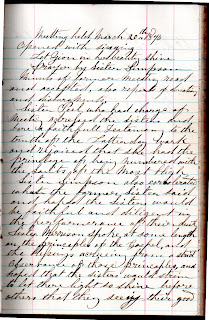 Meeting held March 20th 1890
Opened with singing
Let Zion in her beauty shine
Prayer by Sister Simpson
Minuts of former meeting read
and accepted, also reports of teachers
and
Sister had charge of
Meeting, the sisters and
bore a faithful Testimony to the
truth of the Latterday work
and rejoiced that she had the
Priviledge of being numbered with
the Saints of the Most High
Sister Simpson also
what the former sister had said
and hoped the sisters would
be faithful and diligent in
the performance of their duty
Sister Morrison spoke at some length
on the principles of the Gospel, and
the blessings accruing from a strict
observance of those principles, and
hoped that the sisters would strive
to let their light so shine before
others that they seeing their good